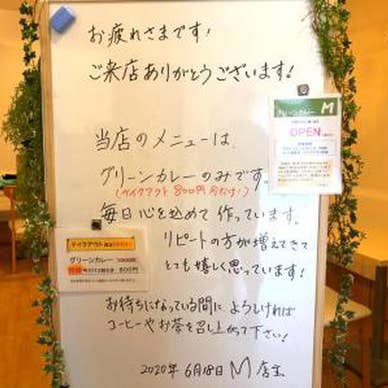 お疲れさまです!
ご来店ありがとうございます!
グリーンカレー M
OPEN
当店のメニューは、
グリーンカレーのみです。
(テイクアウト800円今だけ!)
毎日心を込めて作っています。
リピートの方が増えてきて
とても嬉しく思っています!
テイクアウト
グリーンカレー
800円
お待ちになっている間に よろしければ
コーヒーやお茶を召し上がって下さい!
2020年 6月18日 M 店主